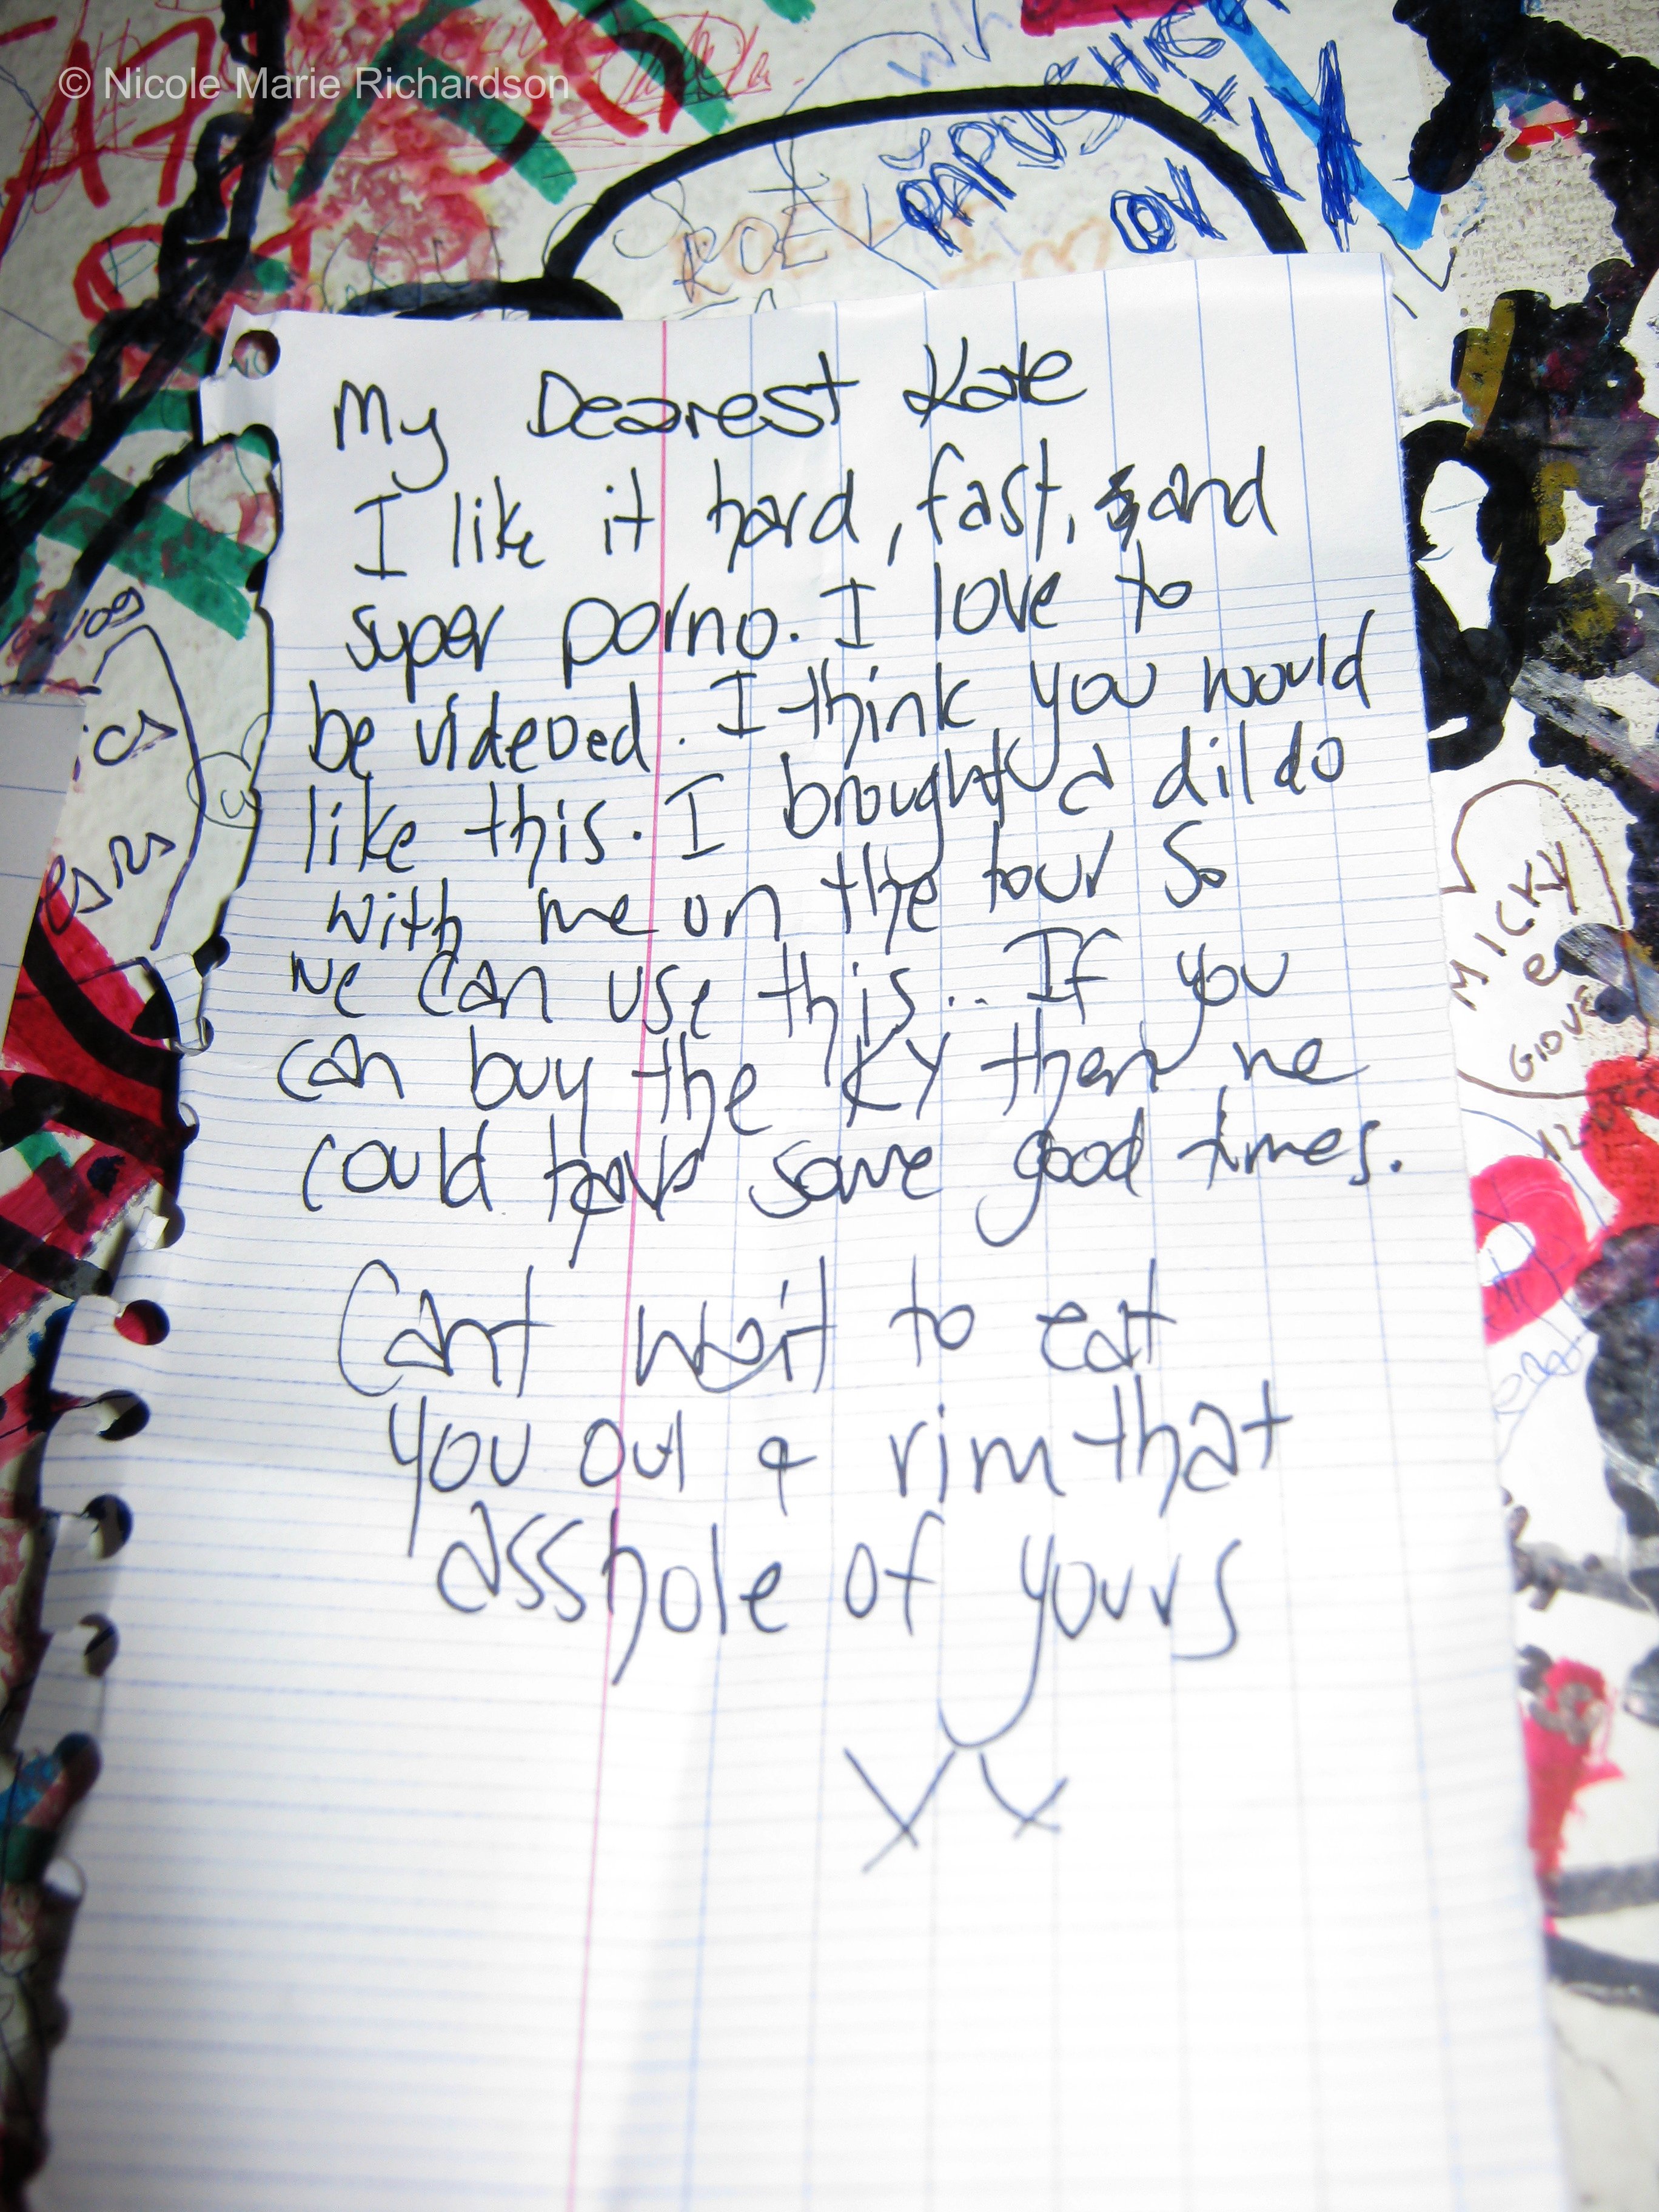 © Nicole Marie Richardson
PAPUSHIC
My Dearest Kate
I like it hard, fast, and
super porno. I love to
be videoed. I think you would
like this. I brought a dildo
with me on the tour so
we can use this.. If you
can buy the KY then we
could have some good times.
Cant wait to eat
you out & rim that
asshole of yours
xx
MICKY
e
GIOVE